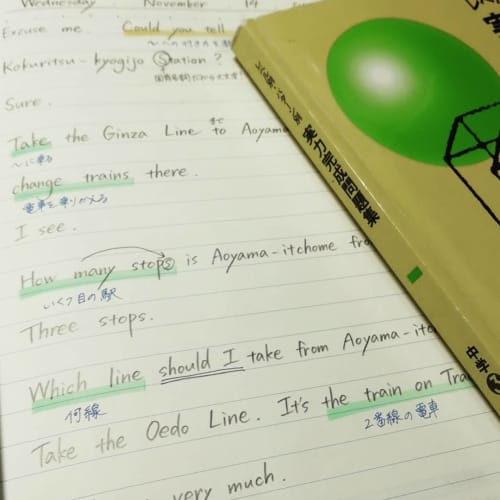 Wednesday November 14
Excuse me. Could you tell
Kokuritsu-kyogijo Station?
固有名詞だから大文字
Sure.
まで
Take the Ginza Line to Aoyama
〜に乗る
change trains there.
電車を乗りかえる
I see.
How many stops is Aoyama-itchome fro
いくつ目の駅
Three stops.
Which line should I take from Aoyama-itc
何線
Take the Oedo Line. It's the train on Tra
2番線の電車
very much.
実力完成問題集
中学